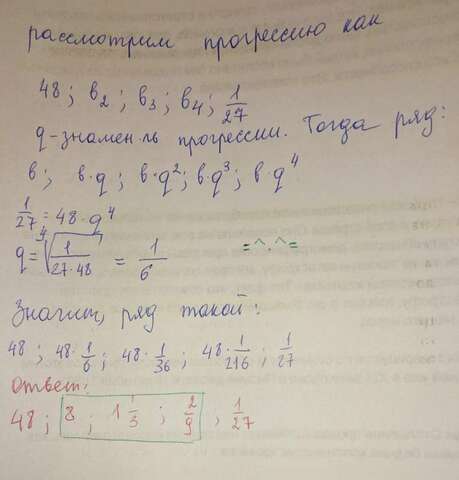 рассмотрим прогрессию как
48; b₂; b₃; b₄; 1/27
q-знамен-ль прогрессии. Тогда ряд:
b; b·q; b·q²; b·q³; b·q⁴
1/27 = 48·q⁴
q = ⁴√(1/(27·48)) = 1/6 =^.^=
Значит, ряд такой:
48; 48·1/6; 48·1/36; 48·1/216; 1/27
Ответ:
48; 8; 1 1/3; 2/9, 1/27